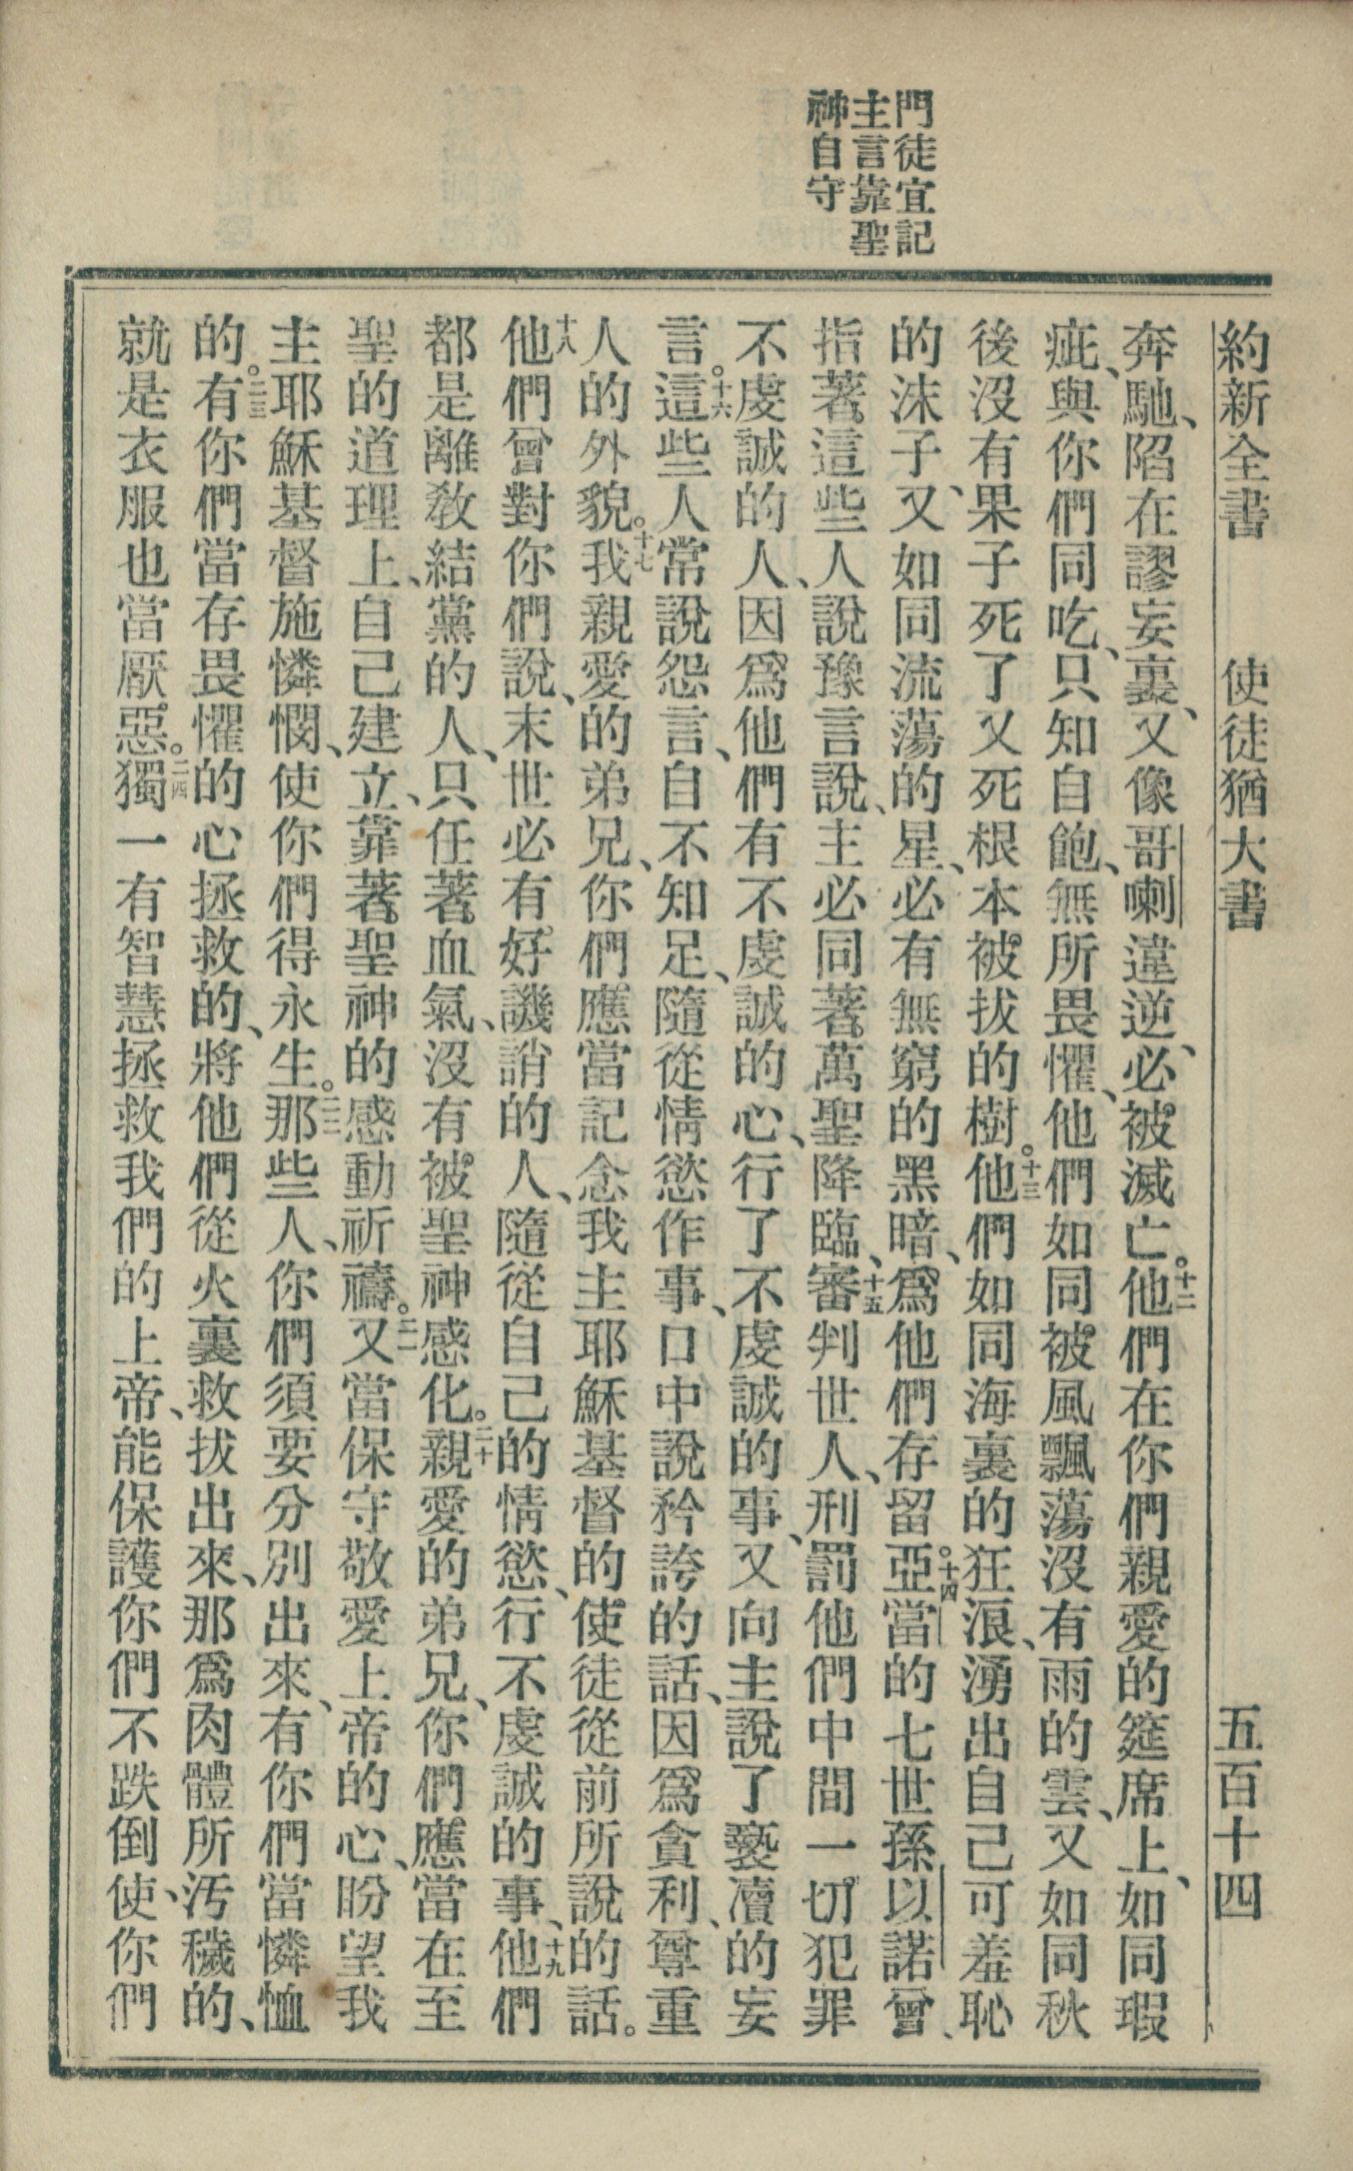 門徒宜記
主言靠聖
神自守
約新全書 使徒猶大書 五百十四
奔馳、陷在謬妄裏、又像哥喇違逆、必被滅亡。十二他們在你們親愛的筵席上、如同瑕
疵、與你們同吃、只知自飽、無所畏懼、他們如同被風飄蕩沒有雨的雲、又如同秋
後沒有果子死了又死根本被拔的樹。十三他們如同海裏的狂浪、湧出自己可羞恥
的沫子、又如同流蕩的星、必有無窮的黑暗、爲他們存留。十四亞當的七世孫以諾曾、
指著這些人說豫言說、主必同著萬聖降臨、十五審判世人、刑罰他們中間一切犯罪
不虔誠的人、因爲他們有不虔誠的心、行了不虔誠的事、又向主說了褻瀆的妄
言。十六這些人常說怨言、自不知足、隨從情慾作事、口中說矜誇的話、因爲貪利、尊重
人的外貌。十七我親愛的弟兄、你們應當記念我主耶穌基督的使徒從前所說的話。
十八他們曾對你們說、末世必有好譏誚的人、隨從自己的情慾、行不虔誠的事、十九他們
都是離敎結黨的人、只任著血氣、沒有被聖神感化。二十親愛的弟兄、你們應當在至
聖的道理上、自己建立、靠著聖神的感動祈禱。二一又當保守敬愛上帝的心、盼望我
主耶穌基督施憐憫、使你們得永生。二二那些人、你們須要分別出來、有你們當憐恤
的。二三有你們當存畏懼的心拯救的、將他們從火裏救拔出來、那爲肉體所汚穢的、
就是衣服也當厭惡。二四獨一有智慧拯救我們的上帝、能保護你們不跌倒、使你們